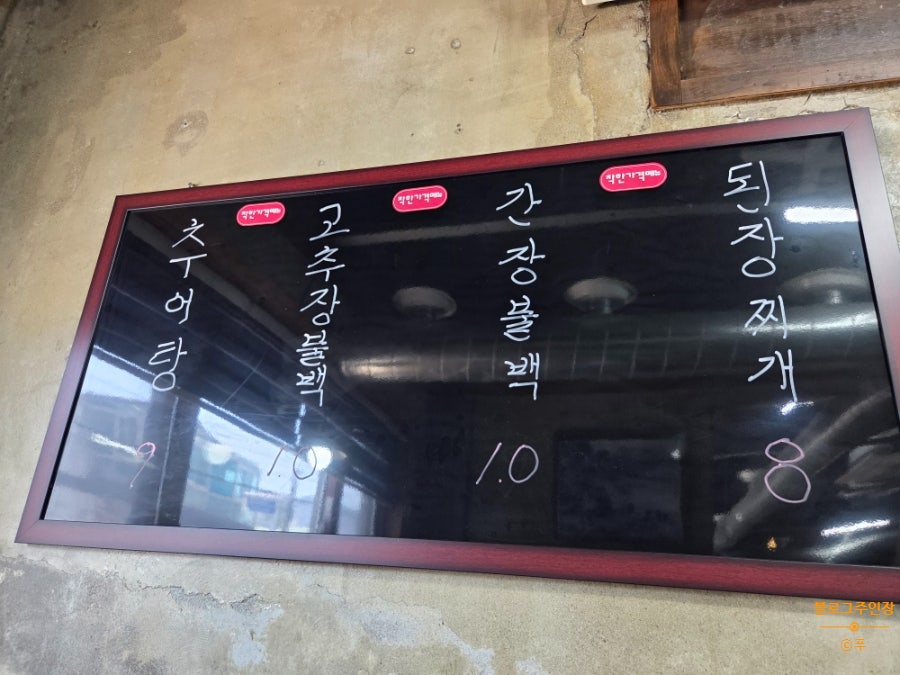 추어탕
9
착한가격메뉴
고추장불백
1.0
착한가격메뉴
간장불백
1.0
착한가격메뉴
된장찌개
8
블로그주인장
©푸